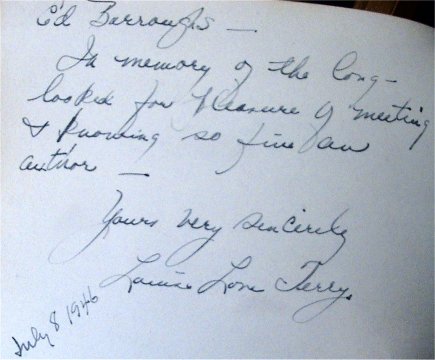 Ed Burroughs —
In memory of the long-
looked for pleasure of meeting
& knowing so fine an
author —
Yours very sincerely
Louise Love Terry.
July 8 1946